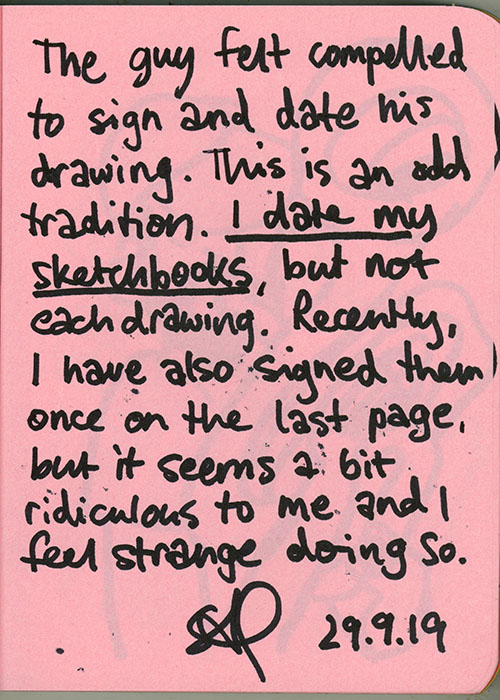 The guy felt compelled
to sign and date his
drawing. This is an odd
tradition. I date my
sketchbooks, but not
each drawing. Recently,
I have also signed them
once on the last page,
but it seems a bit
ridiculous to me and I
feel strange doing so.
29.9.19